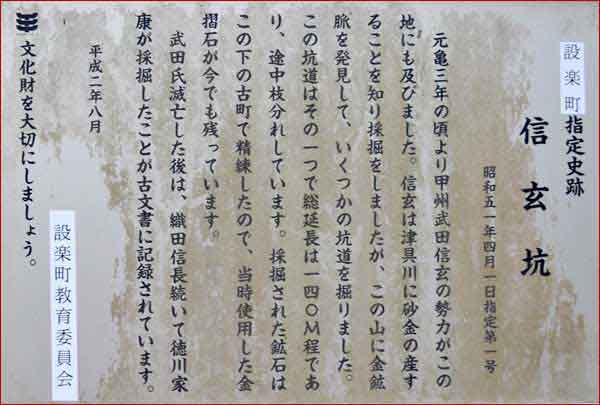 設楽町指定史跡
信玄坑
昭和五一年四月一日指定第一号
元亀三年の頃より甲州武田信玄の勢力がこの
地にも及びました。信玄は津具川に砂金の産す
ることを知り採掘をしましたが、この山に金鉱
脈を発見して、いくつかの坑道を掘りました。
この坑道はその一つで総延長は一四〇M程であ
り、途中枝分れしています。採掘された鉱石は
この下の古町で精練したので、当時使用した金
摺石が今でも残っています。
武田氏滅亡した後は、織田信長続いて徳川家
康が採掘したことが古文書に記録されています。
平成二年八月
設楽町教育委員会
文化財を大切にしましょう。